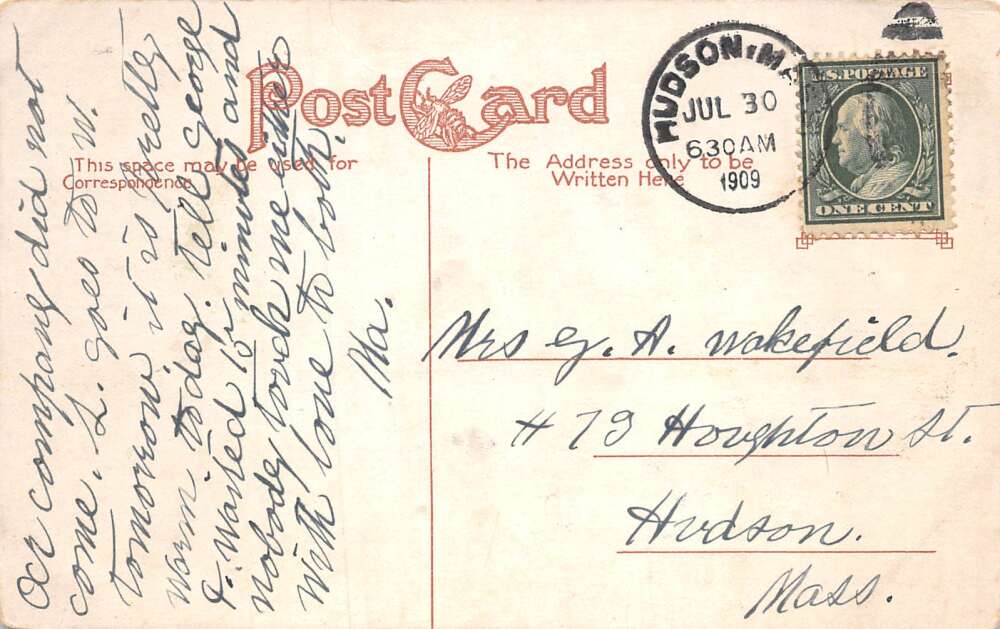 Post Card
This space may be used for
Correspondence
The Address only to be
Written Here
HUDSON, MA
JUL 30
630AM
1909
U.S. POSTAGE
ONE CENT
Our company did not
come. L. goes to W.
tomorrow it is pretty
warm today. Tell George
I. waited 15 minutes and
nobody took me either
With love to both.
Ma.
Mrs G. A. Wakefield.
# 79 Houghton St.
Hudson.
Mass.